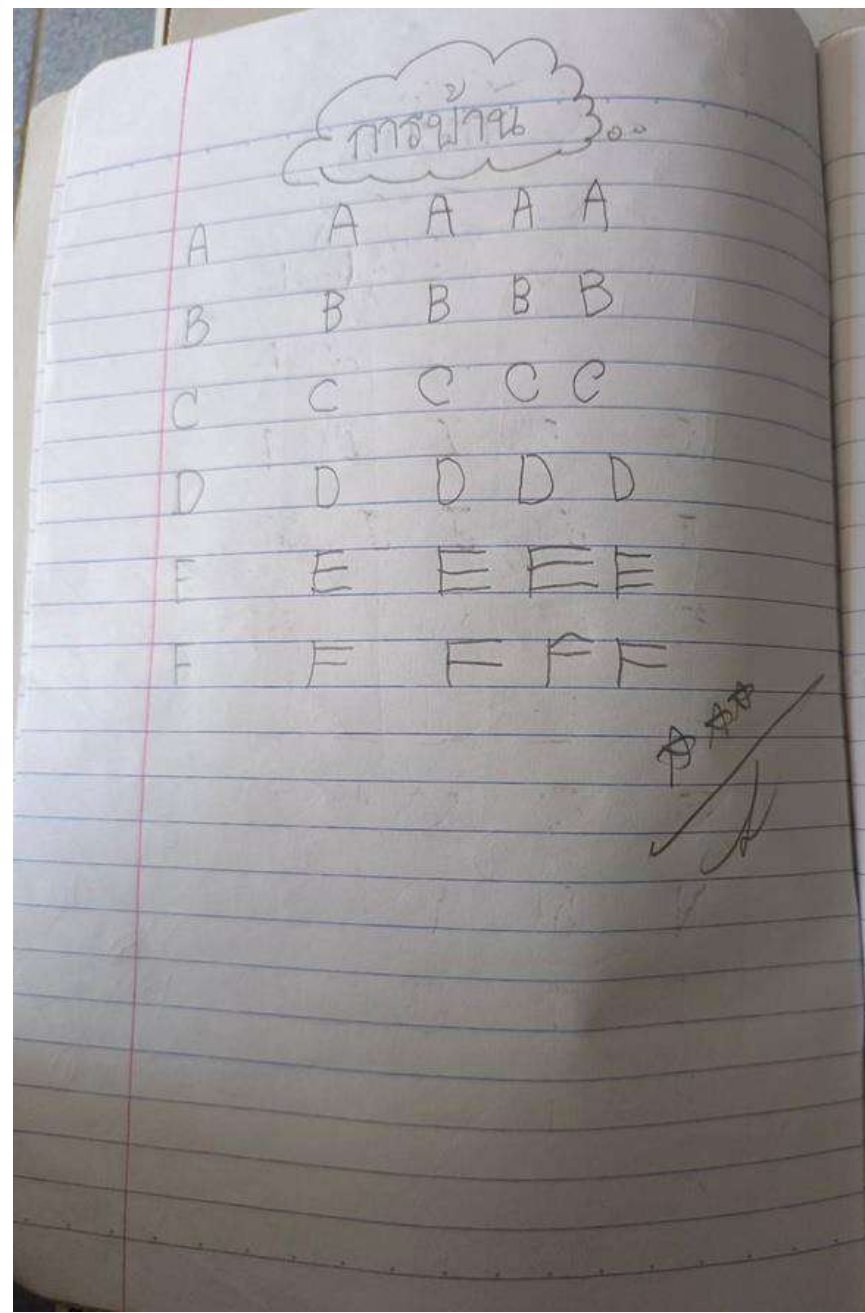 การบ้าน
A A A A A
B B B B B
C C C C C
D D D D D
E E E E E
F F F F F